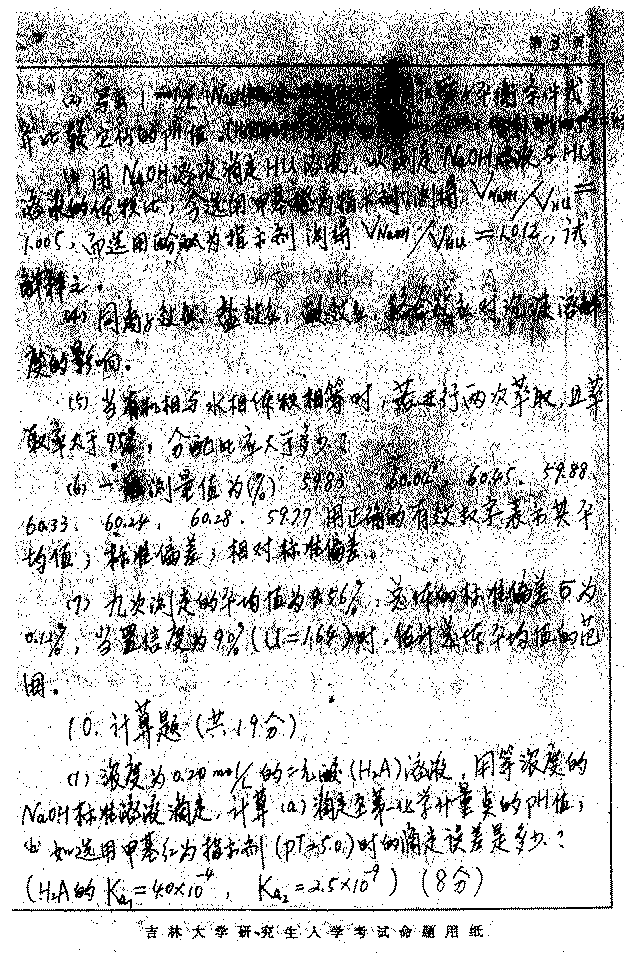 第 3 页
(2) 写出 NaOH 平衡条件式
并比较它们的 pH 值。
用 NaOH 溶液滴定 HCl 溶液, 以测定 NaOH 溶液与 HCl
溶液的体积比, 今选用甲基橙为指示剂, 测得 V_NaOH/V_HCl =
1.005, 而选用酚酞为指示剂测得 V_NaOH/V_HCl = 1.012, 试
解释之。
(4) 同离子效应, 盐效应, 酸效应, 络合效应对沉淀溶解
度的影响。
(5) 当有机相与水相体积相等时, 若进行两次萃取, 且萃
取率大于95%, 分配比应大于多少?
(6) 一组测量值为(%) 59.83 60.04 60.45、59.88、
60.33、60.24、60.28、59.77 用正确的有效数字表示其平
均值; 标准偏差; 相对标准偏差。
(7) 九次测定的平均值为 .56%, 总体的标准偏差σ为
0.12%, 当置信度为90% (U=1.64)时, 估计总体平均值的范
围。
10. 计算题 (共19分)
(1) 浓度为0.20 mol/L的二元酸(H₂A)溶液, 用等浓度的
NaOH标准溶液滴定, 计算 (a) 滴定至第一化学计量点的pH值;
(b) 如选用甲基红为指示剂 (pT=5.0)时的滴定误差是多少?
(H₂A的 Ka₁=4.0×10⁻⁴, Ka₂=2.5×10⁻⁹) (8分)
吉林大学研究生入学考试命题用纸